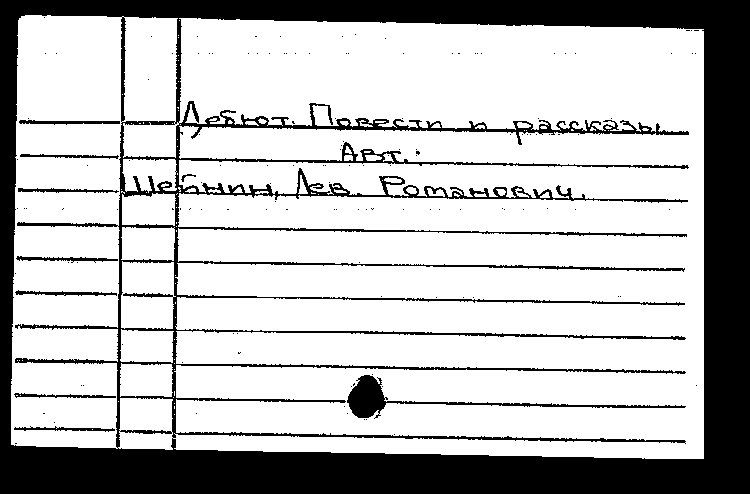 Дебют. Повести и рассказы.
Авт.:
Шейнин, Лев. Романович.